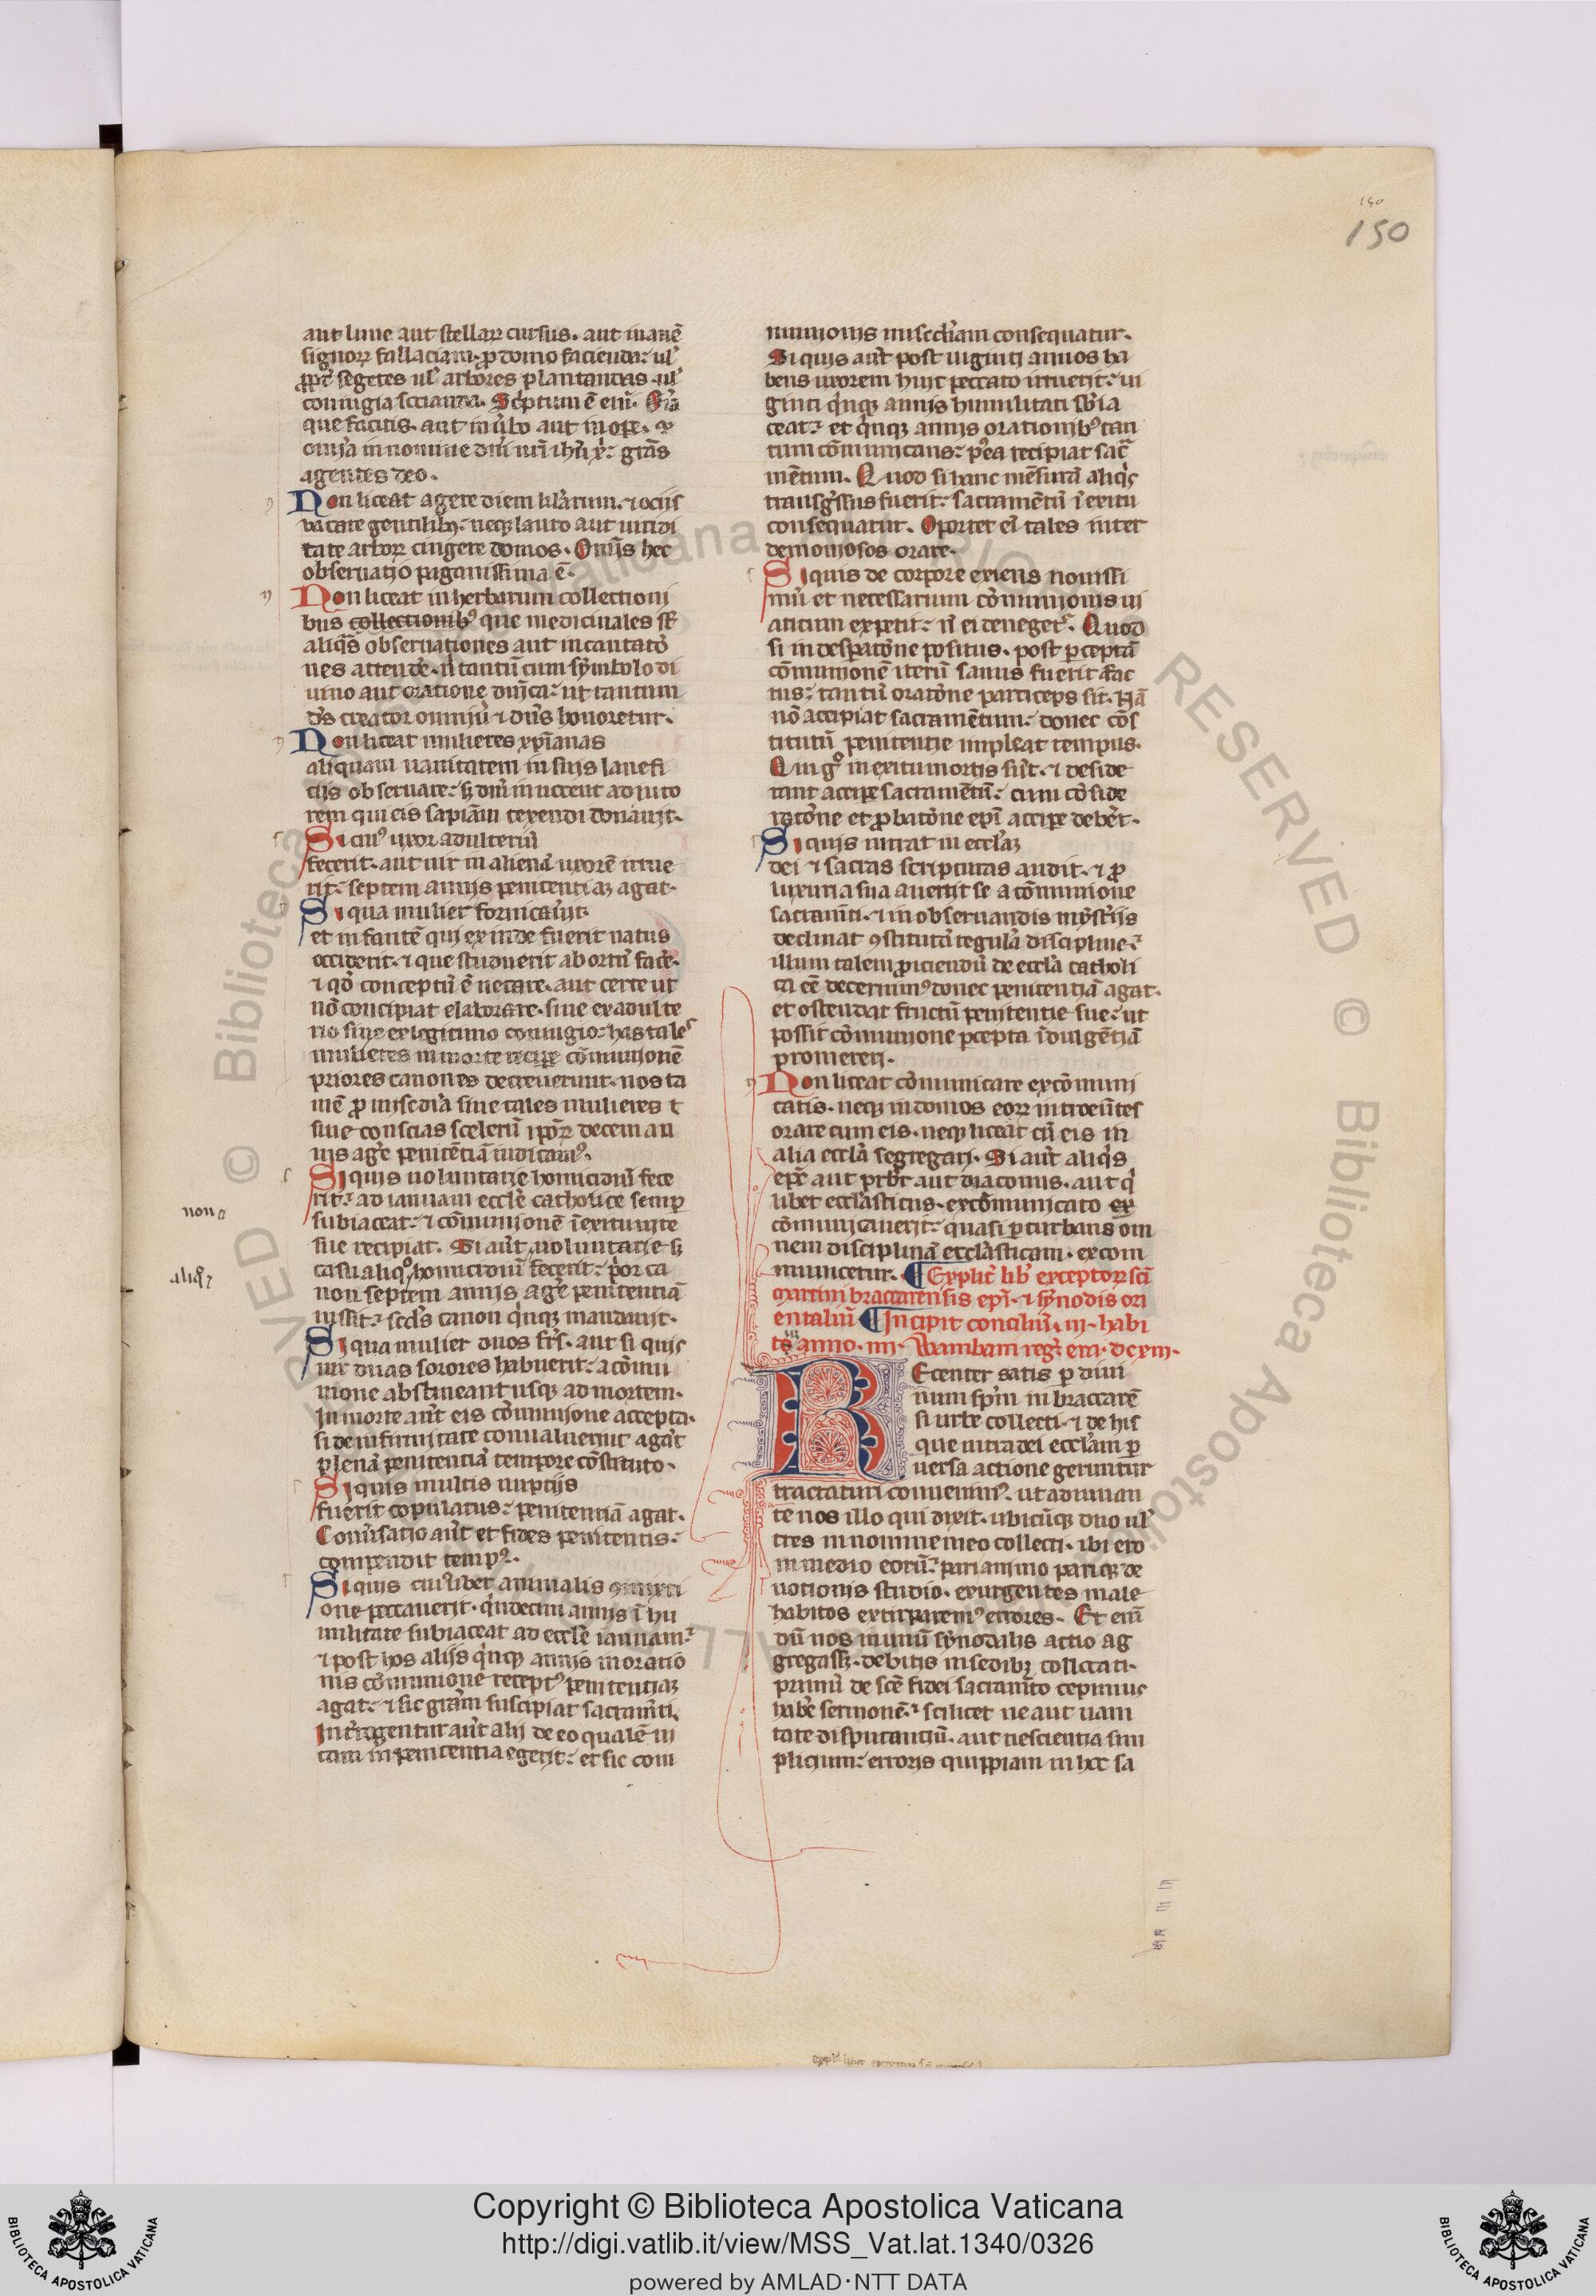 150
150
aut lune aut stellarꝝ cursus. aut inanē
signorꝝ fallaciam. ꝓ domo facienda: ul̕
ꝓpt̕ segetes ul̕ arbores plantandas. ul̕
coniugia socianda. Scͥptum ē eni̅.
que facitis. aut in u̕bo aut in ope.
om̅ia in nomine dn̅i nr̅i ih̅u xͥ: gr̅as
agentes deo.
Non liceat agere diem kl̕arum. ⁊ ociis
uacare gentilibꝫ: neqꝫ lauro aut uiridi
tate arborꝝ cingere domos. Om̅is hec
obseruatio paganissima ē.
Non liceat in herbarum collectioni
bus collectionibꝰ que medicinales st̅
aliqͣs obseruationes aut incantatō
nes attende̕. nͥ tantū cum symbolo di
uino aut oratione dn̅ica: ut tantum
ds̅ creator omniū ⁊ dn̅s honoretur.
Non liceat mulieres xp̅ianas
aliquam uanitatem in suis lanefi
ciis obseruare: sꝫ dn̅m inuocent adiuto
rem qui eis sapiā̅m texendi donauit.
Si cuiꝰ uxor adulteriū
fecerit. aut uir in alienā uxorē irrue
rit: septem annis penitentiaꝫ agat.
Si qua mulier fornicau̕it
et infantē qui exinde fuerit natus
occiderit. ⁊ que studuerit abortū face̕.
⁊ qͦd conceptū ē necare. aut certe ut
nō concipiat elaborare. siue ex adulte
rio siue ex legitimo coniugio: has tales
mulieres in morte recipe̕ cōmunionē
priores canones decreuerunt. nos ta
mē ꝓ miscd̕ia siue tales mulieres
siue conscias scelerū ip̅oꝝ decem an
nis age̕ penitētiā iudicamꝰ.
Si quis uoluntarie homicidiū fece
rit: ad ianuam eccl̕e catholice semꝑ
subiaceat: ⁊ cōmunionē ī exitu uite
sue recipiat. Si aūt uoluntarie sꝫ
non
casu aliqͦ homicidiū fecerit: pͥor ca
aliqͦ
non septem annis age̕ penitentiā
iussit: scd̕s canon qͥnqꝫ mandauit.
Si qua mulier duos fr̅s. aut si quis
uir duas sorores habuerit: a cōmu
nione abstineant usqꝫ ad mortem.
In morte aūt eis cōmunione accepta.
si de infirmitate conualuerint agāt
plenā penitentiā tempore cōstituto.
Si quis multis nuptiis
fuerit copulatus: penitentiā agat.
Conu̕satio aūt et fides penitentis:
compendit tempꝰ.
Si quis cuiꝰlibet animalis ꝯmixti
one peccauerit. qͥndecim annis ī hu
militate subiaceat ad eccl̕e ianuam:
⁊ post hos aliis qͥnqꝫ annis in oratio
nis cōmunione receptꝰ penitentiaꝫ
agat: ⁊ sic gr̅am suscipiat sacram̅ti.
Int̕rogentur aūt alii de eo qualē ui
tam in penitentia egerit: et sic com
munionis miscd̕iam consequatur.
Si quis aūt post uiginti annos ha
bens uxorem huic peccato irruerit: ui
ginti qͥnqꝫ annis humilitati sb̕ia
ceat: et qͥnqꝫ annis orationibꝰ tan
tum cōmunicans: p̕ea recipiat sacr̅
mētum. Quod si hanc mēsurā aliqͥs
transg̕ssus fuerit: sacramētū ī exitu
consequatur. Oportet eī tales inter
demoniosos orare.
Si quis de corpore exiens nouissi
mū et necessarium cōmunionis ui
aticum expetit: nͦ ei denegetᷣ. Quod
si in desperatōne positus. post ꝑceptā
cōmunionē iterū sanus fuerit fac
tus: tantū oratōne particeps sit. Nā
nō accipiat sacramētum: donec cōs
titutū penitentie impleat tempus.
Qui gͦ in exitu mortis sūt. ⁊ deside
rant accipe̕ sacramētū: cum cōside
ratōne et ꝓbatōne ep̅i accipe̕ debēt.
Si quis intrat in eccl̕iaꝫ
dei ⁊ sacras scripturas audit. ⁊ ꝓ
luxuria sua auertit se a cōmunione
sacram̅ti. ⁊ in obseruandis mysṫiis
declinat ꝯstitutā regulā discipline:
illum talem ꝓiciendū de eccl̕ia catholi
ca eē decernimꝰ donec penitentiā agat.
et ostendat fructū penitentie sue: ut
possit cōmunione ꝑcepta īdulgētiā
promereri.
Non liceat cōmunicare excōmuni
catis. neqꝫ in domos eorꝝ introeūtes
orare cum eis. neqꝫ liceat cū eis in
alia eccl̕ia segregari. Si aūt aliqͥs
epc̅ aut prb̅r aut diaconus. aut qͥ
libet eccl̕iasticus. excōmunicato ex
cōmunicauerit: quasi ꝑturbans om
nem disciplinā eccl̕iasticam. excom
municetur. ¶ Explic̅ lib̕ exceptorꝝ sc̅i
martini braccarensis ep̅i. ⁊ synodis ori
entaliū ¶ Incipit conciliū. iii. habi
tū anno. iiii. Wambani reg̕. era. dcxiii.
Recenter satis ꝑ diui
num spm̅ in braccarē
si urbe collecti. ⁊ de his
que intra dei eccl̕iam ꝑ
uersa actione geruntur
tractaturi conuenimꝰ. ut adiuuan
te nos illo qui dixit. ubicūqꝫ duo ul̕
tres in nomine meo collecti. ibi ero
in medio eorū: pari animo pariqꝫ de
uotionis studio. exurgentes male
habitos extirparemꝰ errores. Et eni̅
dū nos in unū synodalis actio ag
gregassꝫ. debitis in sedibꝫ collocati.
primū de sc̅e fidei sacram̅to cepimus
habe̕ sermonē: scilicet ne aut uani
tate disputantiū. aut nescientia sim
plicium: erroris quippiam in hac sa
Copyright © Biblioteca Apostolica Vaticana
http://digi.vatlib.it/view/MSS_Vat.lat.1340/0326
powered by AMLAD·NTT DATA
BIBLIOTECA APOSTOLICA VATICANA
BIBLIOTECA APOSTOLICA VATICANA